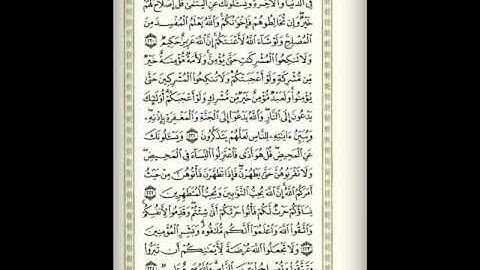 فِى ٱلدُّنْيَا وَٱلْـَٔاخِرَةِ وَيَسْـَٔلُونَكَ عَنِ ٱلْيَتَـٰمَىٰ قُلْ إِصْلَاحٌ لَّهُمْ
خَيْرٌ وَإِن تُخَالِطُوهُمْ فَإِخْوَٰنُكُمْ وَٱللَّهُ يَعْلَمُ ٱلْمُفْسِدَ مِنَ
ٱلْمُصْلِحِ وَلَوْ شَآءَ ٱللَّهُ لَأَعْنَتَكُمْ إِنَّ ٱللَّهَ عَزِيزٌ حَكِيمٌ ٢٢٠
وَلَا تَنكِحُوا۟ ٱلْمُشْرِكَـٰتِ حَتَّىٰ يُؤْمِنَّ وَلَأَمَةٌ مُّؤْمِنَةٌ خَيْرٌ
مِّن مُّشْرِكَةٍ وَلَوْ أَعْجَبَتْكُمْ وَلَا تُنكِحُوا۟ ٱلْمُشْرِكِينَ حَتَّىٰ
يُؤْمِنُوا۟ وَلَعَبْدٌ مُّؤْمِنٌ خَيْرٌ مِّن مُّشْرِكٍ وَلَوْ أَعْجَبَكُمْ أُو۟لَـٰٓئِكَ
يَدْعُونَ إِلَى ٱلنَّارِ وَٱللَّهُ يَدْعُوٓا۟ إِلَى ٱلْجَنَّةِ وَٱلْمَغْفِرَةِ بِإِذْنِهِۦ
وَيُبَيِّنُ ءَايَـٰتِهِۦ لِلنَّاسِ لَعَلَّهُمْ يَتَذَكَّرُونَ ٢٢١ وَيَسْـَٔلُونَكَ
عَنِ ٱلْمَحِيضِ قُلْ هُوَ أَذًى فَٱعْتَزِلُوا۟ ٱلنِّسَآءَ فِى ٱلْمَحِيضِ
وَلَا تَقْرَبُوهُنَّ حَتَّىٰ يَطْهُرْنَ فَإِذَا تَطَهَّرْنَ فَأْتُوهُنَّ مِنْ حَيْثُ
أَمَرَكُمُ ٱللَّهُ إِنَّ ٱللَّهَ يُحِبُّ ٱلتَّوَّٰبِينَ وَيُحِبُّ ٱلْمُتَطَهِّرِينَ ٢٢٢
نِسَآؤُكُمْ حَرْثٌ لَّكُمْ فَأْتُوا۟ حَرْثَكُمْ أَنَّىٰ شِئْتُمْ وَقَدِّمُوا۟ لِأَنفُسِكُمْ
وَٱتَّقُوا۟ ٱللَّهَ وَٱعْلَمُوٓا۟ أَنَّكُم مُّلَـٰقُوهُ وَبَشِّرِ ٱلْمُؤْمِنِينَ
٢٢٣ وَلَا تَجْعَلُوا۟ ٱللَّهَ عُرْضَةً لِّأَيْمَـٰنِكُمْ أَن تَبَرُّوا۟
وَتَتَّقُوا۟ وَتُصْلِحُوا۟ بَيْنَ ٱلنَّاسِ وَٱللَّهُ سَمِيعٌ عَلِيمٌ